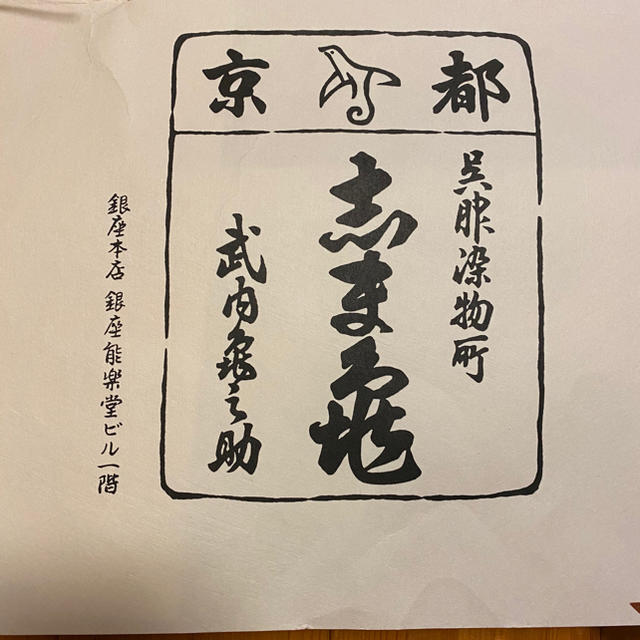 京都
呉服染物所
志ま亀
武内亀之助
銀座本店 銀座能楽堂ビル一階